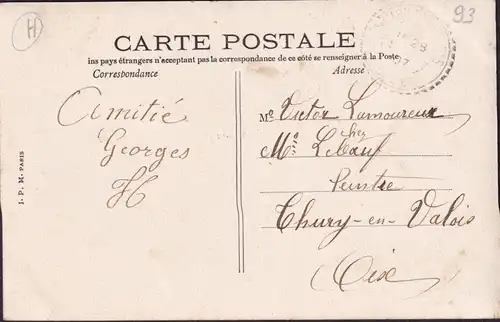 H
93
CARTE POSTALE
ins pays étrangers n'acceptant pas la correspondance de ce côté se renseigner à la Poste
Correspondance
Adresse
28
07
Amitié
Georges
H
M. Victor Lamoureux
chez
Mr Lebœuf
Peintre
Thury-en-Valois
Oise
I. P. M. PARIS